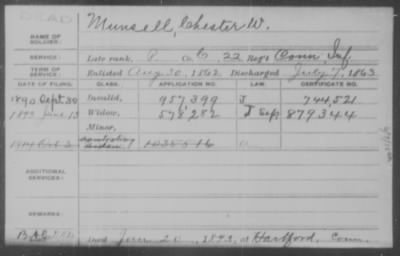 DEAD
Munsell, Chester W.
NAME OF
SOLDIER:
SERVICE: Late rank, P Co. C, 22 Reg't Conn Inf
TERM OF
SERVICE: Enlisted Aug 20, 1862 Discharged July 7, 1863
DATE OF FILING. CLASS. APPLICATION NO. LAW. CERTIFICATE NO.
1890 Sept 30 Invalid, 957,399 J 744,521
1893 June 13 Widow, 578,282 J 879344
Minor,
Widow 1038516
ADDITIONAL
SERVICES:
REMARKS:
Died June 20, 1893, at Hartford, Conn.